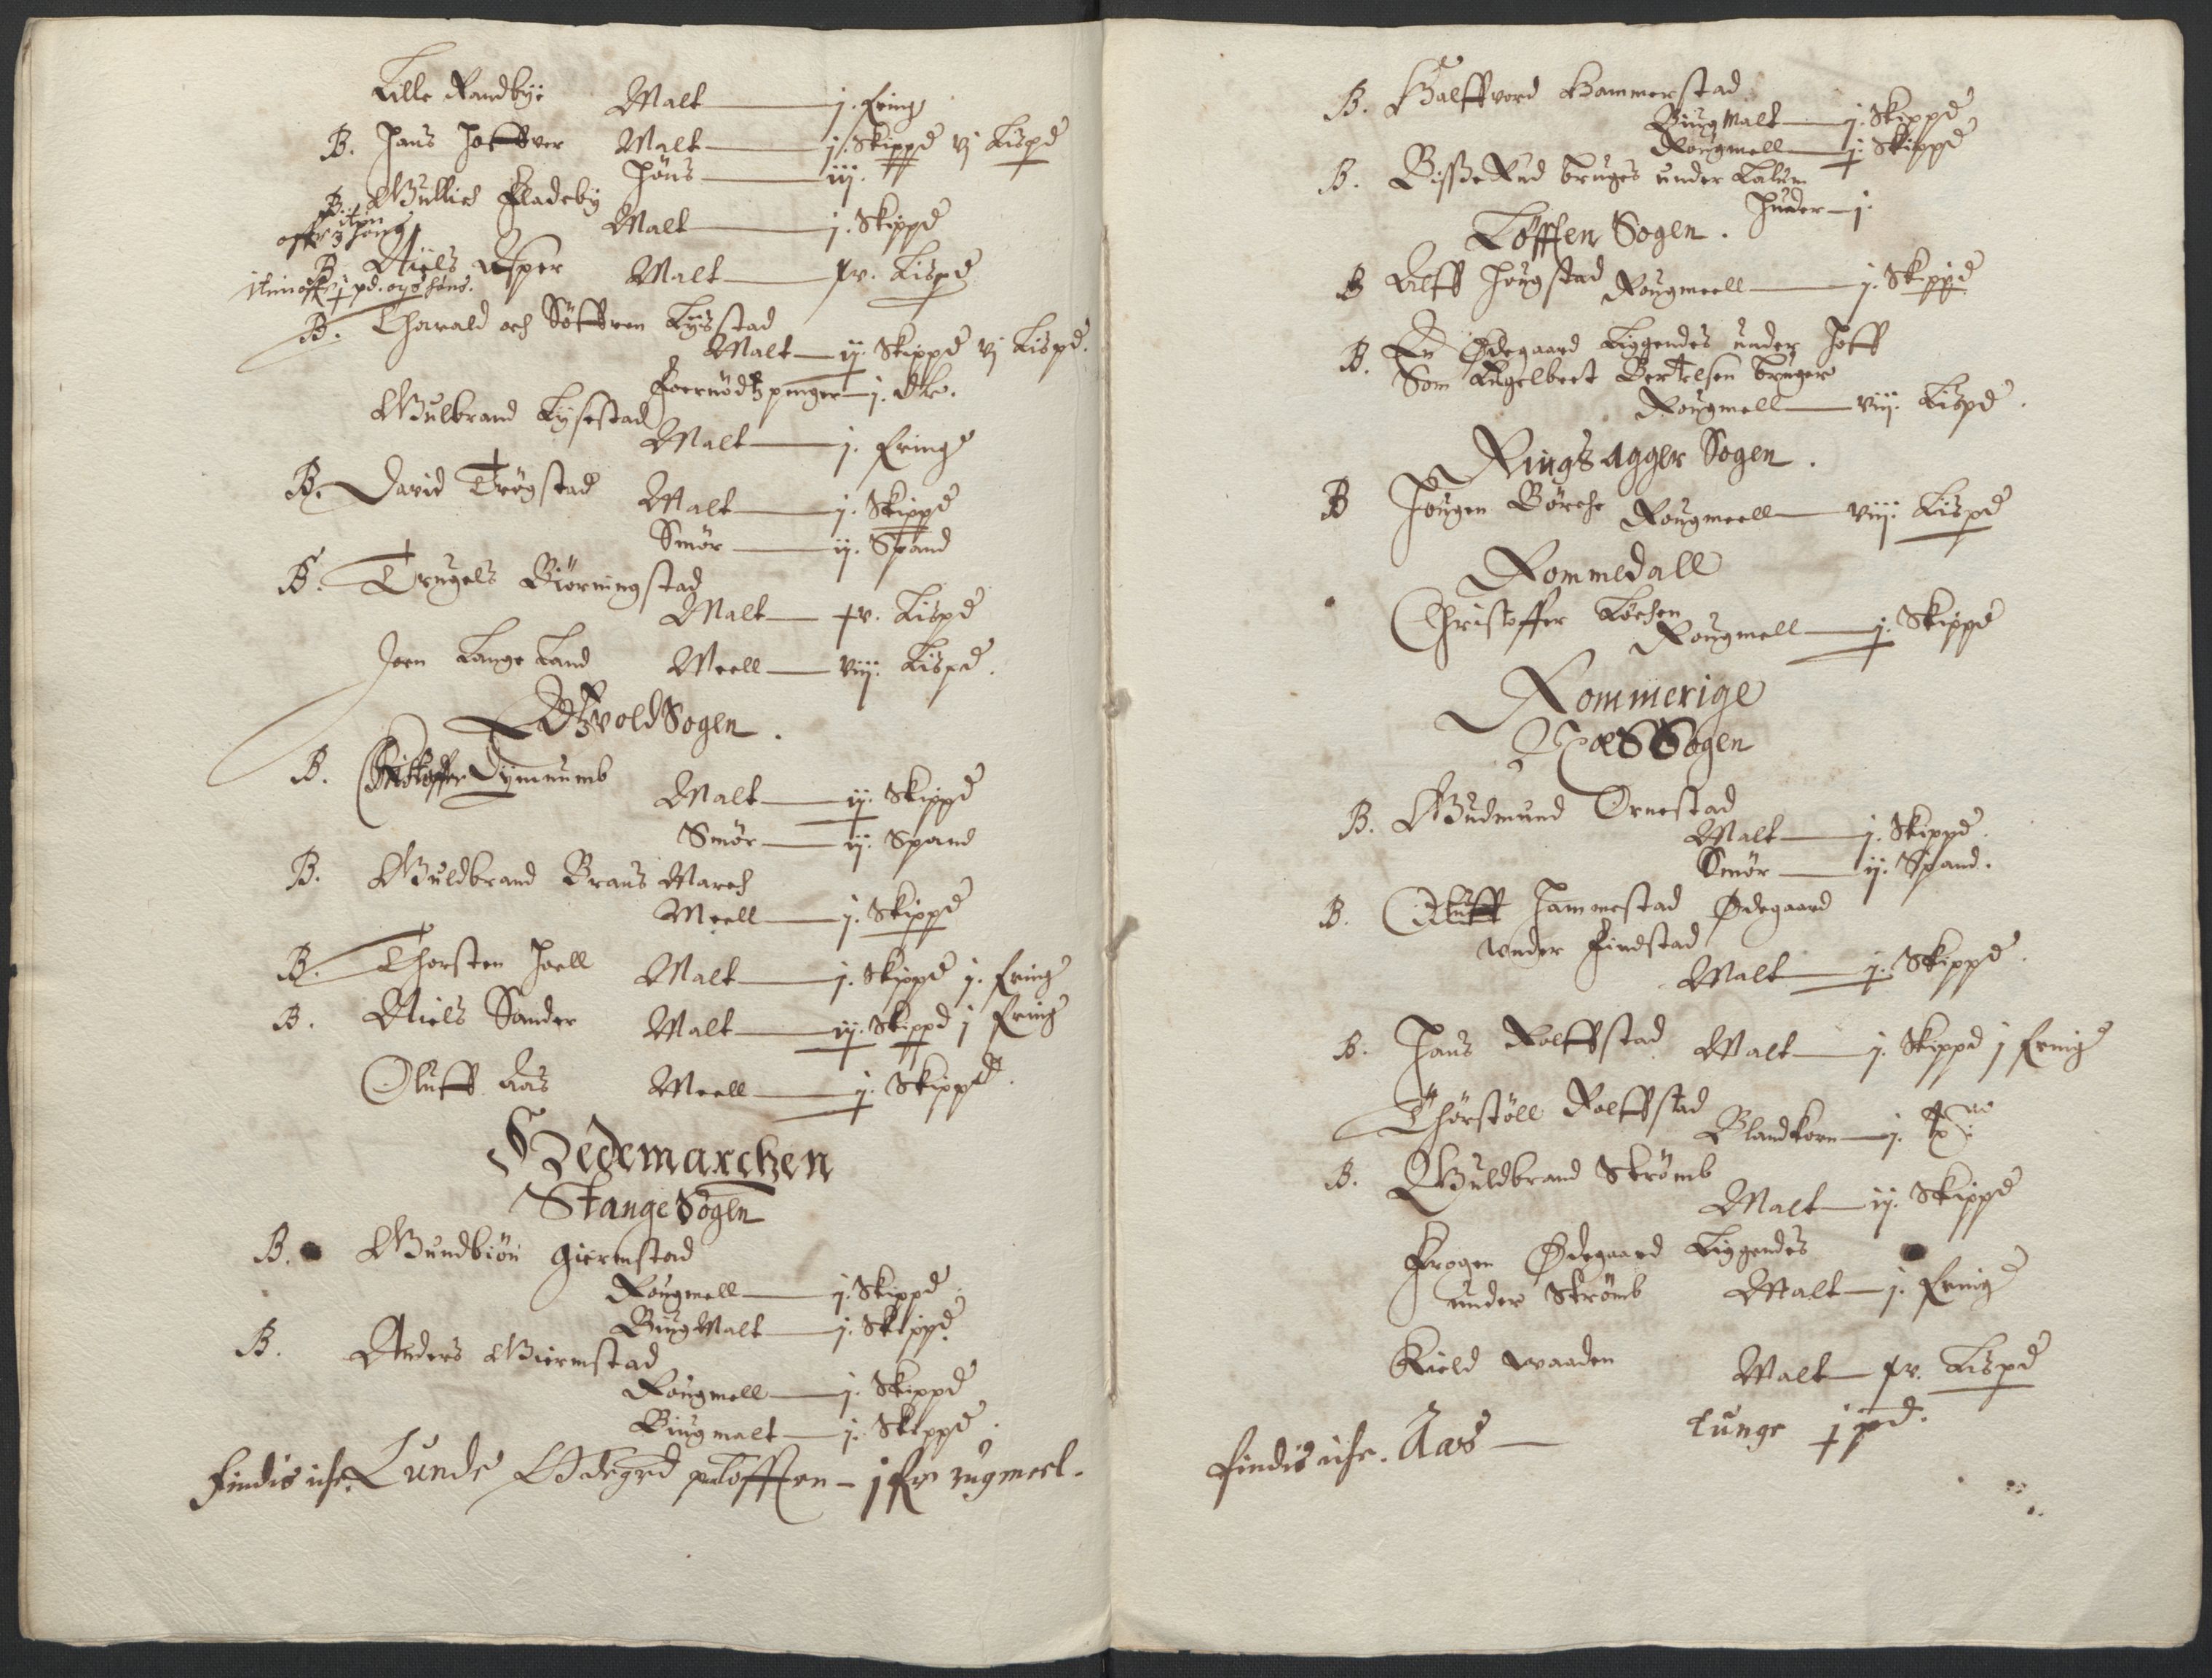 Lille Randbye Malt — j. Fring
B. Hans Hoffver Malt — j. Skippd vj Lispd
Høns — iij.
B. Gullich Fladeby
Malt — j. Skippd
B. Niels Asper Malt — xv. Lispd
B. Tharald och Søffren Lysstad
Malt — ij. Skippd vj Lispd.
Foernødtz penger — j. dlr.
Gulbrand Lysestad
Malt — j. Fring
B. David Trøgstad Malt — j. Skippd
Smør — ij. Spand
B. Trugels Biørningstad
Malt — xv. Lispd
Joen Lange Land Meell — viij. Lispd.
Edtzvold Sogen.
B. Christoffer Dymnumb
Malt — ij. Skippd
Smør — ij. Spand
B. Guldbrand Brans March
Meell — j. Skippd
B. Thorsten Hoell Malt — j. Skippd j. Fring
B. Niels Sander Malt — ij. Skippd j Fring
Oluff Aas Meell — j. Skippd.
Hedemarchen
Stange Sogen
B. Gundbiøn Giermstad
Rougmell — j. Skippd
Biug Malt — j. Skippd
B. Anders Giermstad
Rougmell — j. Skippd
Biugmalt — j. Skippd.
Findis iche. Lunde Ødegrd paa Løfften — j Fr rugmeel.
B. Halffvord Hammerstad
Biug Malt — j. Skippd
Rougmell — j. Skippd
B. Bisse Rud bruges under Lalum
Huder — j.
Løfften Sogen.
B Alff Hougstad Rougmeell — j. Skippd
B. En Ødegaard Liggendes under Hoff
Som Engelbret Bertelsen bruger
Rougmell — viij. Lispd.
Ringsagger Sogen.
B Hougen Børche Rougmeell — viij. Lispd
Rommedall
Christoffer Løchen
Rougmell — j. Skippd
Rommerige
Næs Sogen
B. Gudmund Ornestad
Malt — j. Skippd.
Smør — ij. Spand.
B. Oluff Hammestad Ødegaard
under Findstad
Malt — j. Skippd.
B. Hans Rolffstad Malt — j. Skippd j Fring
Thørstøll Rolffstad
Blandkorn — j.
B. Guldbrand Strømb
Malt — ij. Skippd
Krogen Ødegaard Liggendes
under Strømb Malt — j. Fring
Kield Waaden Malt — xv. Lispd
Findis iche. Aas — tunge j pd.